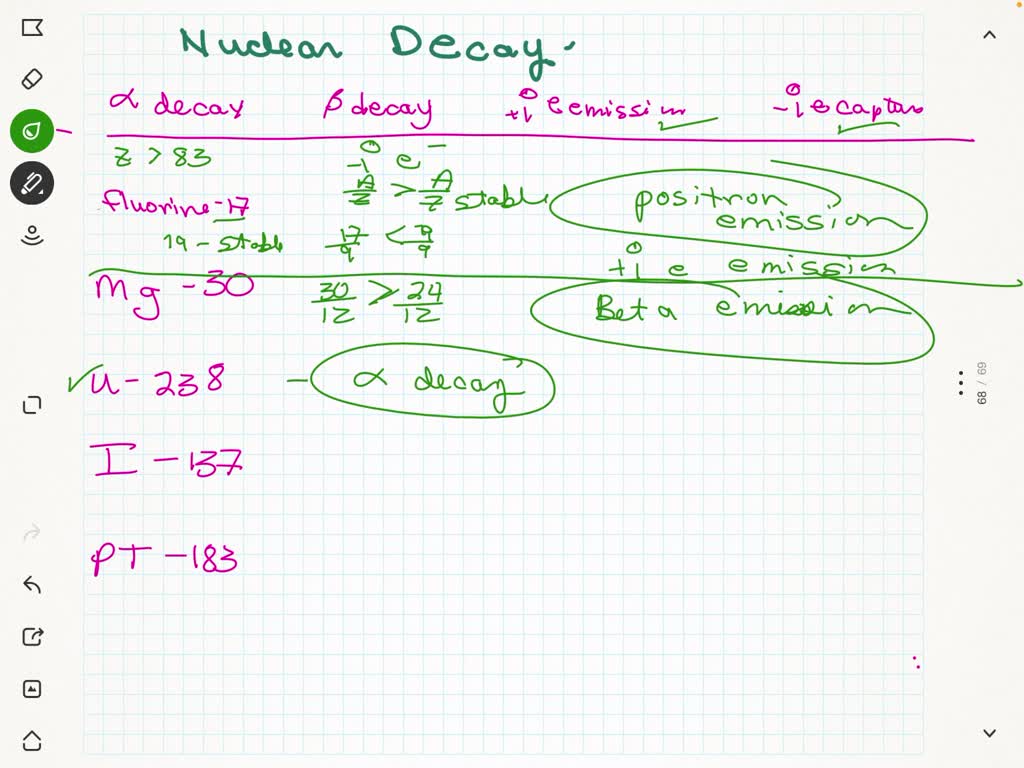 Nuclear Decay.
α decay β decay 0 +1 e emission 0 -1 e capture
z > 83 0 -1 e -
A/Z > A/Z stable
fluorine-17 positron emission
19 - stable 17/9 < 19/9
0 +1 e emission
Mg - 30 30/12 > 24/12 Beta emission
✓ U - 238 - α decay
I - 137
PT - 183
68 / 69